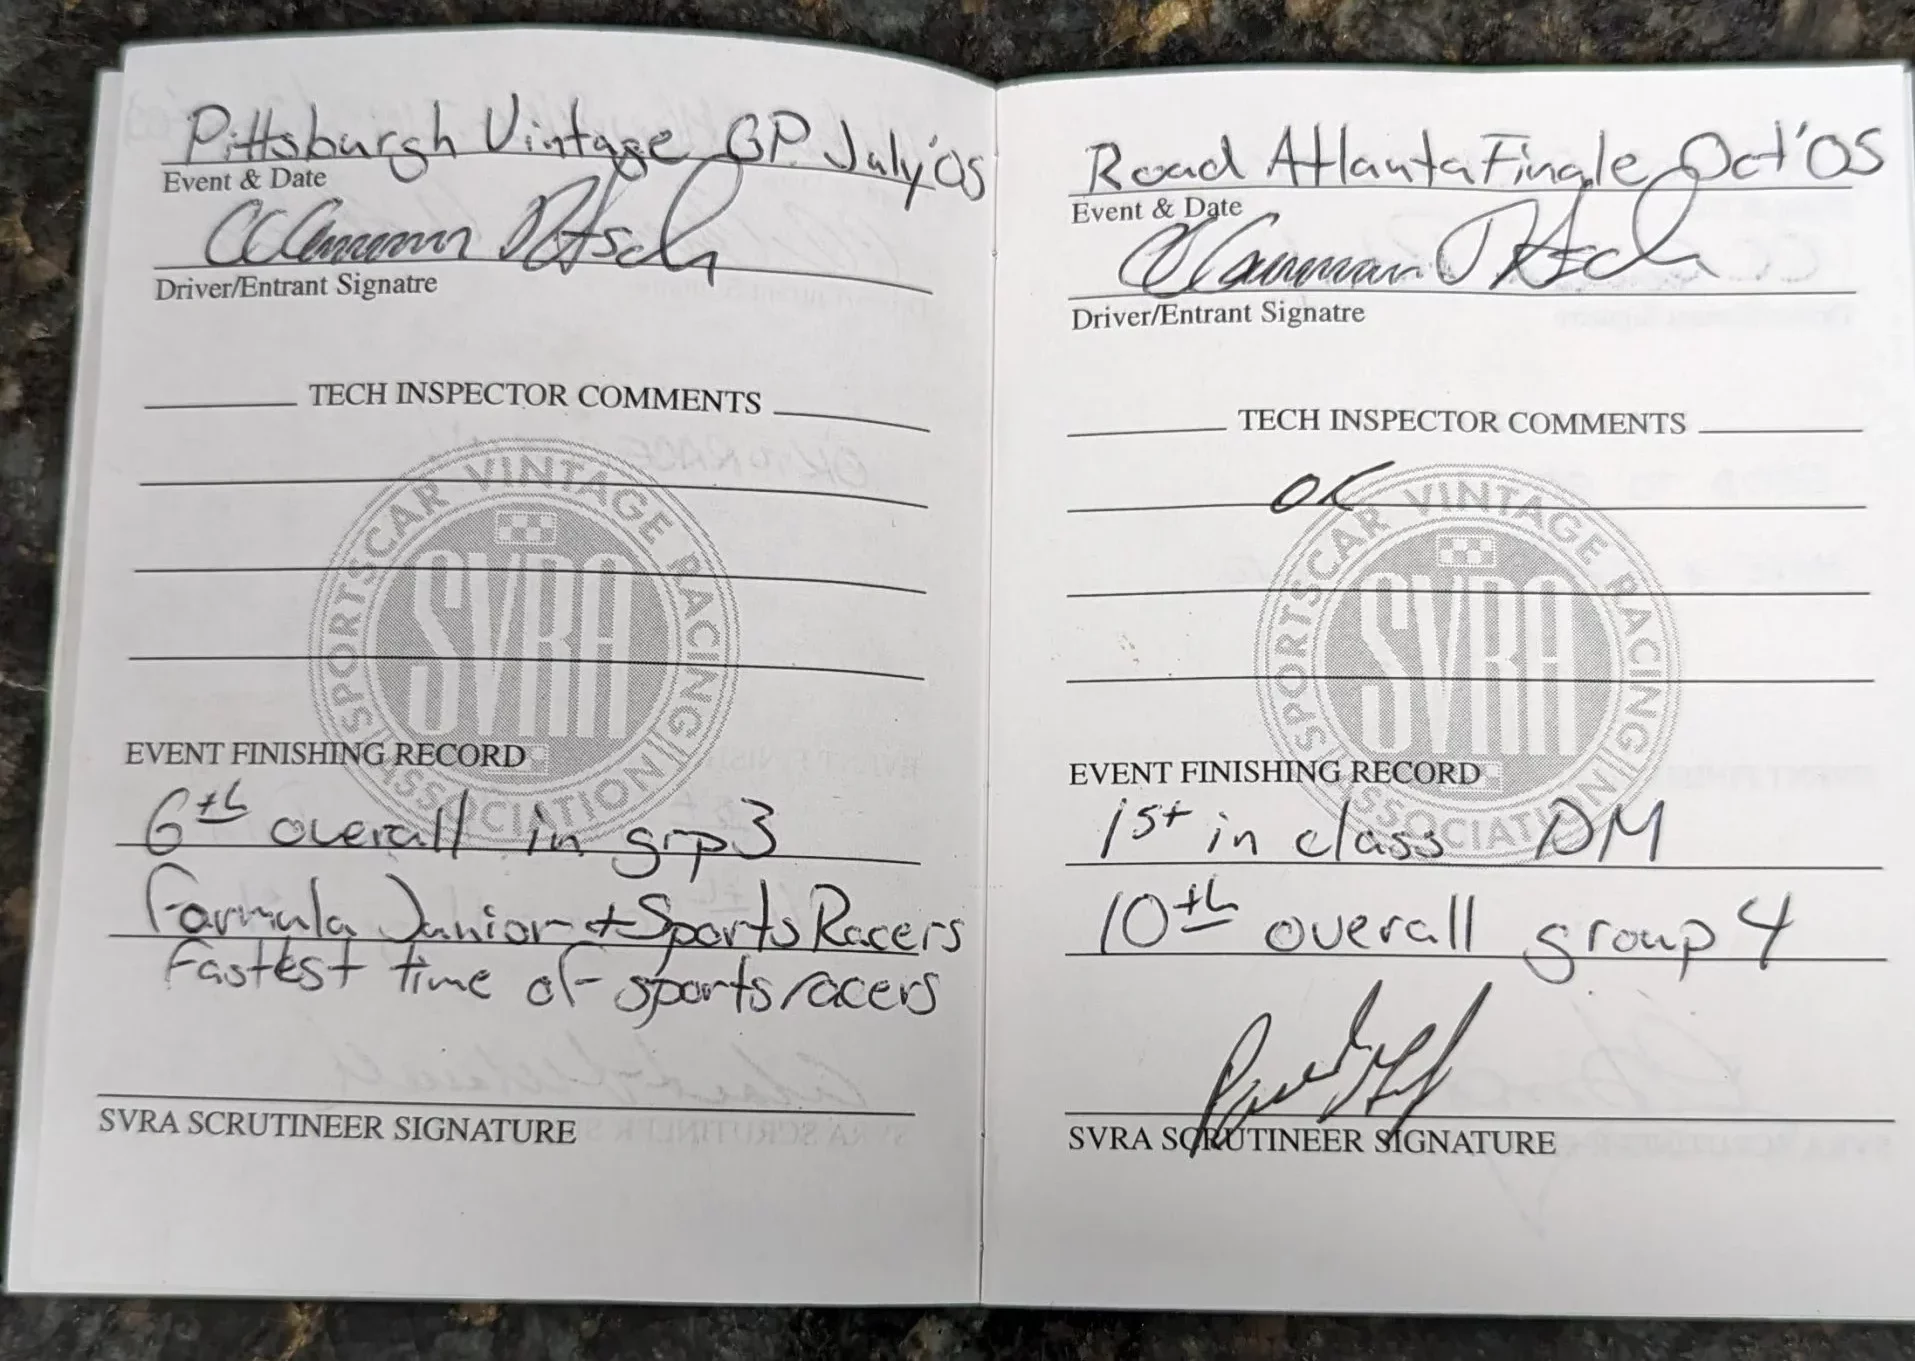 Pittsburgh Vintage GP July '05
Event & Date
Driver/Entrant Signatre
TECH INSPECTOR COMMENTS
SPORTSCAR VINTAGE RACING ASSOCIATION
SVRA
EVENT FINISHING RECORD
6th overall in grp 3
Formula Junior + Sports Racers
Fastest time of sports racers
SVRA SCRUTINEER SIGNATURE
Road Atlanta Finale Oct '05
Event & Date
Driver/Entrant Signatre
TECH INSPECTOR COMMENTS
OK
SPORTSCAR VINTAGE RACING ASSOCIATION
SVRA
EVENT FINISHING RECORD
1st in class DM
10th overall group 4
SVRA SCRUTINEER SIGNATURE